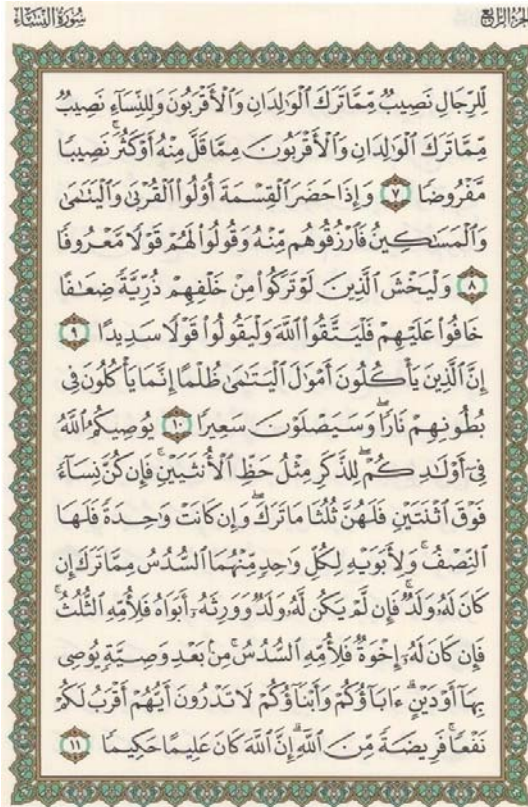 سُورَةُ النِّسَاءِ
الجُزْءُ الرَّابِعُ
لِّلرِّجَالِ نَصِيبٌ مِّمَّا تَرَكَ ٱلْوَٰلِدَانِ وَٱلْأَقْرَبُونَ وَلِلنِّسَآءِ نَصِيبٌ
مِّمَّا تَرَكَ ٱلْوَٰلِدَانِ وَٱلْأَقْرَبُونَ مِمَّا قَلَّ مِنْهُ أَوْ كَثُرَ ۚ نَصِيبًا
مَّفْرُوضًا ٧ وَإِذَا حَضَرَ ٱلْقِسْمَةَ أُو۟لُوا۟ ٱلْقُرْبَىٰ وَٱلْيَتَٰمَىٰ
وَٱلْمَسَٰكِينُ فَٱرْزُقُوهُم مِّنْهُ وَقُولُوا۟ لَهُمْ قَوْلًا مَّعْرُوفًا
٨ وَلْيَخْشَ ٱلَّذِينَ لَوْ تَرَكُوا۟ مِنْ خَلْفِهِمْ ذُرِّيَّةً ضِعَٰفًا
خَافُوا۟ عَلَيْهِمْ فَلْيَتَّقُوا۟ ٱللَّهَ وَلْيَقُولُوا۟ قَوْلًا سَدِيدًا ٩
إِنَّ ٱلَّذِينَ يَأْكُلُونَ أَمْوَٰلَ ٱلْيَتَٰمَىٰ ظُلْمًا إِنَّمَا يَأْكُلُونَ فِى
بُطُونِهِمْ نَارًا ۖ وَسَيَصْلَوْنَ سَعِيرًا ١٠ يُوصِيكُمُ ٱللَّهُ
فِىٓ أَوْلَٰدِكُمْ ۖ لِلذَّكَرِ مِثْلُ حَظِّ ٱلْأُنثَيَيْنِ ۚ فَإِن كُنَّ نِسَآءً
فَوْقَ ٱثْنَتَيْنِ فَلَهُنَّ ثُلُثَا مَا تَرَكَ ۖ وَإِن كَانَتْ وَٰحِدَةً فَلَهَا
ٱلنِّصْفُ ۚ وَلِأَبَوَيْهِ لِكُلِّ وَٰحِدٍ مِّنْهُمَا ٱلسُّدُسُ مِمَّا تَرَكَ إِن
كَانَ لَهُۥ وَلَدٌ ۚ فَإِن لَّمْ يَكُن لَّهُۥ وَلَدٌ وَوَرِثَهُۥٓ أَبَوَاهُ فَلِأُمِّهِ ٱلثُّلُثُ ۚ
فَإِن كَانَ لَهُۥٓ إِخْوَةٌ فَلِأُمِّهِ ٱلسُّدُسُ ۚ مِنۢ بَعْدِ وَصِيَّةٍ يُوصِى
بِهَآ أَوْ دَيْنٍ ۗ ءَابَآؤُكُمْ وَأَبْنَآؤُكُمْ لَا تَدْرُونَ أَيُّهُمْ أَقْرَبُ لَكُمْ
نَفْعًا ۚ فَرِيضَةً مِّنَ ٱللَّهِ ۗ إِنَّ ٱللَّهَ كَانَ عَلِيمًا حَكِيمًا ١١